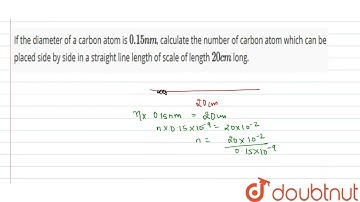 If the diameter of a carbon atom is 0.15nm, calculate the number of carbon atom which can be
placed side by side in a straight line length of scale of length 20cm long.
20cm
n× 0.15nm = 20cm
n × 0.15×10⁻⁹ = 20×10⁻²
n = 20×10⁻²
0.15×10⁻⁹
doubtnut